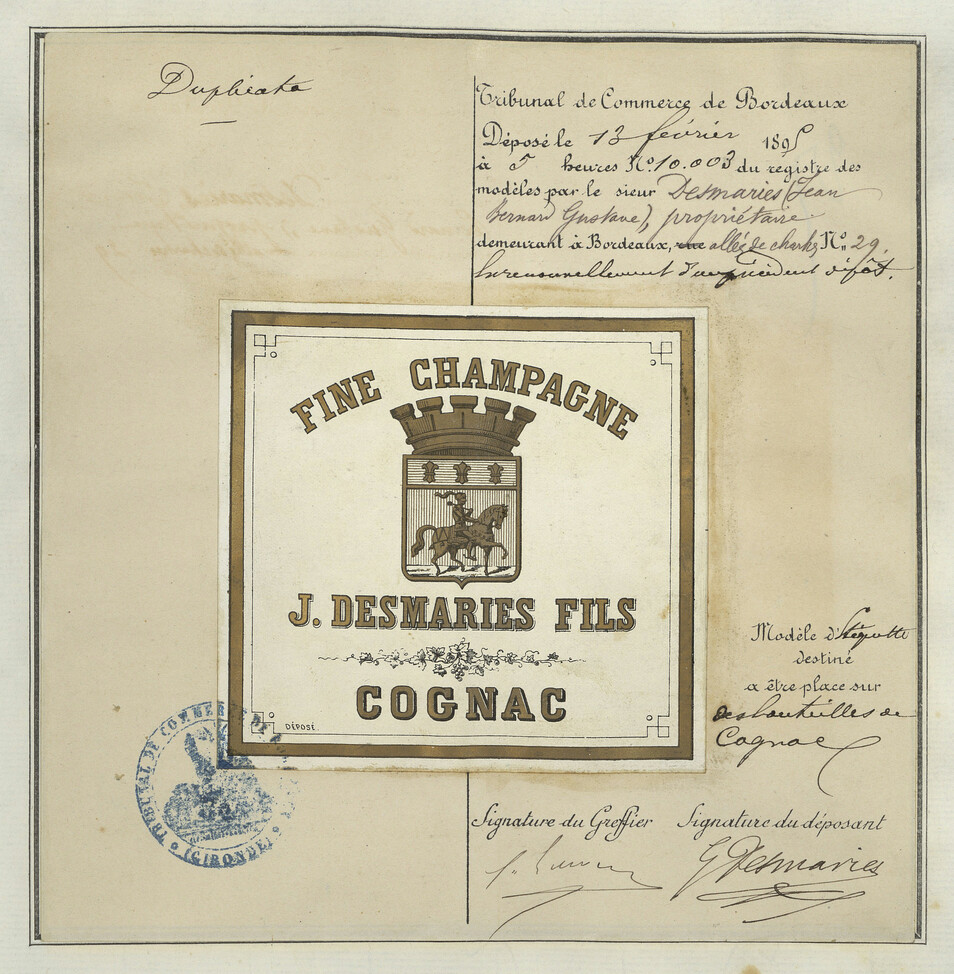 Duplicata
Tribunal de Commerce de Bordeaux
Déposé le 13 février 1895
à 5 heures No. 10.003 du registre des
modèles par le sieur Desmaries (Jean
Bernard Gustave), propriétaire
demeurant à Bordeaux, rue allée de chartres No. 29.
En renouvellement d'un précédent dépôt.
FINE CHAMPAGNE
J. DESMARIES FILS
COGNAC
DÉPOSÉ
Modèle d'étiquette
destiné
a être place sur
des bouteilles de
Cognac
TRIBUNAL DE COMMERCE DE
(GIRONDE)
Signature du Greffier Signature du déposant
G Desmaries